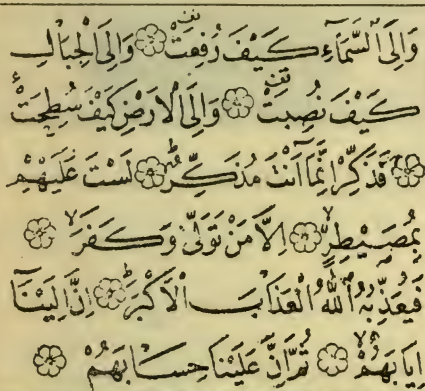 وَاِلَى السَّمَآءِ كَيْفَ رُفِعَتْ ۞ وَاِلَى الْجِبَالِ
كَيْفَ نُصِبَتْ ۞ وَاِلَى الْاَرْضِ كَيْفَ سُطِحَتْ
۞ فَذَكِّرْ اِنَّمَآ اَنْتَ مُذَكِّرٌ ۞ لَسْتَ عَلَيْهِمْ
بِمُصَيْطِرٍ ۞ اِلَّا مَنْ تَوَلّٰى وَكَفَرَ ۞
فَيُعَذِّبُهُ اللّٰهُ الْعَذَابَ الْاَكْبَرَ ۞ اِنَّ اِلَيْنَآ
اِيَابَهُمْ ۞ ثُمَّ اِنَّ عَلَيْنَا حِسَابَهُمْ ۞